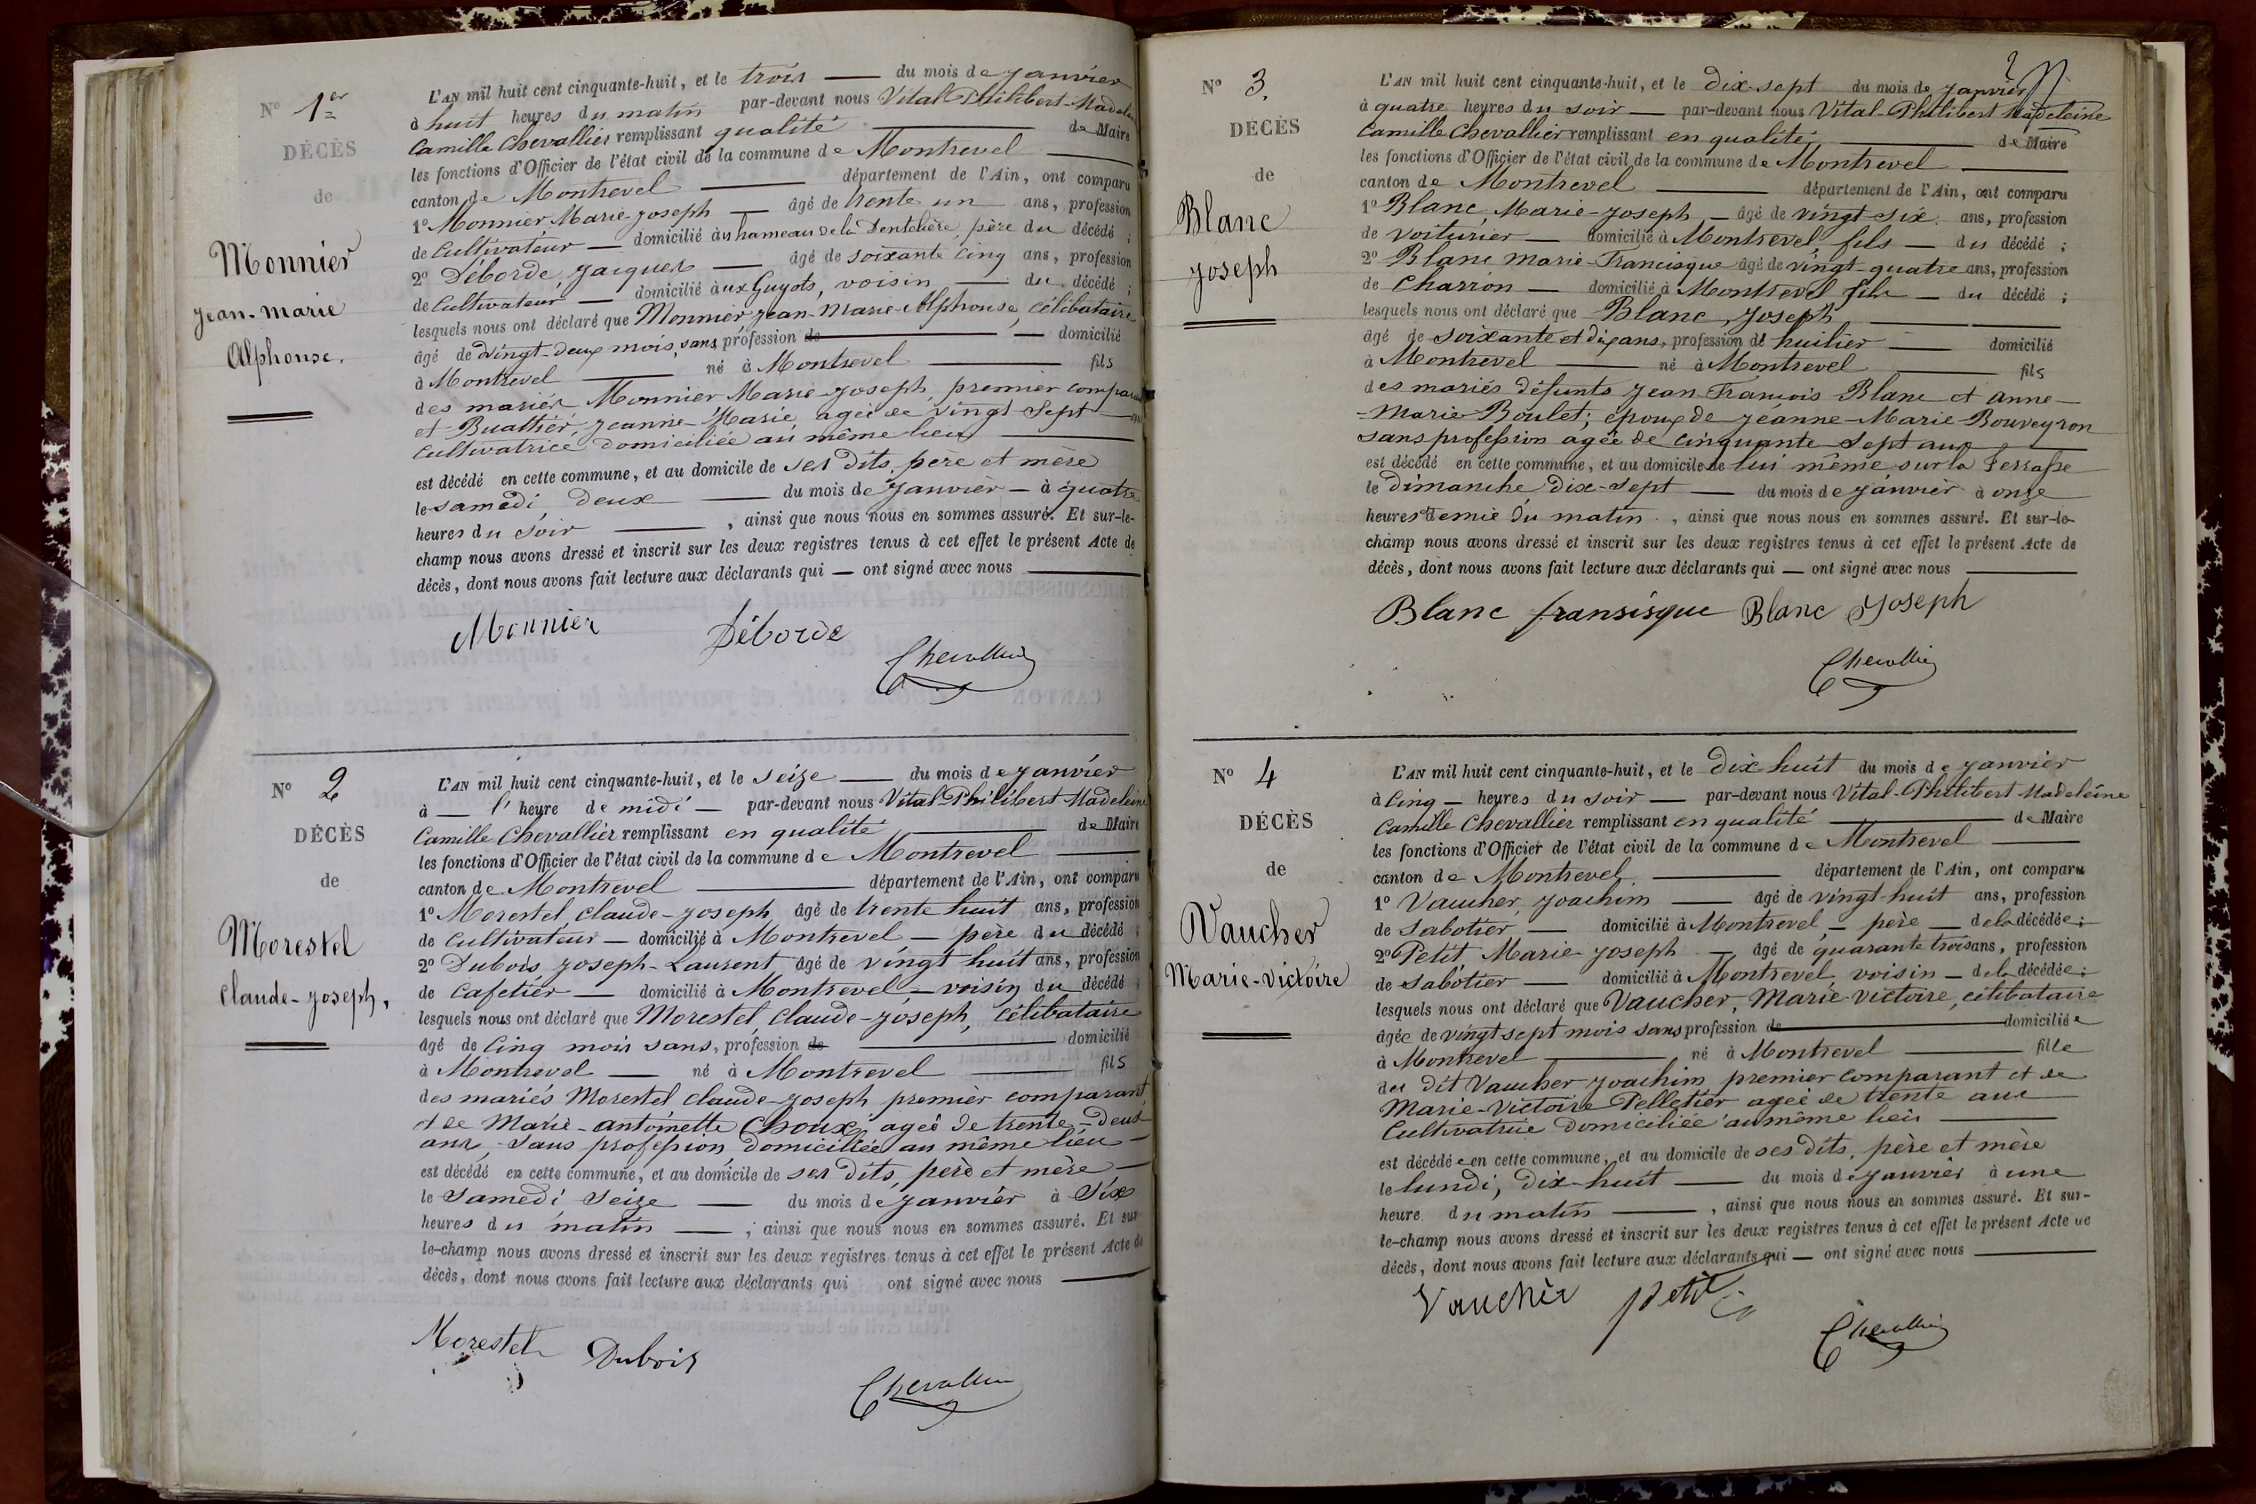 N° 1er
DÉCÈS
de
Monnier
Jean-Marie
Alphonse.
L'AN mil huit cent cinquante-huit, et le trois — du mois de Janvier
à huit heures du matin par-devant nous Vital-Philibert-Madeleine
Camille Chevallier remplissant qualité — de Maire
les fonctions d'Officier de l'état civil de la commune de Montrevel —
canton de Montrevel — département de l'Ain, ont comparu
1° Monnier Marie-Joseph — âgé de trente un ans, profession
de Cultivateur — domicilié au hameau de la Dentelière, père du décédé ;
2° Déborde, Jacques — âgé de soixante cinq ans, profession
de Cultivateur — domicilié aux Guyots, voisin — du décédé ;
lesquels nous ont déclaré que Monnier Jean-Marie-Alphonse, célibataire
âgé de vingt-deux mois, sans profession de — domicilié
à Montrevel — né à Montrevel — fils
des mariés Monnier Marie-Joseph, premier comparant
et Buattier, Jeanne-Marie, agée de vingt-sept ans
cultivatrice domiciliée au même lieu —
est décédé en cette commune, et au domicile de ses dits, père et mère
le samedi, deux — du mois de Janvier — à quatre
heures du soir —, ainsi que nous nous en sommes assuré. Et sur-le-
champ nous avons dressé et inscrit sur les deux registres tenus à cet effet le présent Acte de
décès, dont nous avons fait lecture aux déclarants qui — ont signé avec nous —
Monnier Déborde
Chevallier
N° 2
DÉCÈS
de
Morestel
Claude-Joseph,
L'AN mil huit cent cinquante-huit, et le seize — du mois de Janvier
à — l'heure de midi — par-devant nous Vital-Philibert Madeleine
Camille Chevallier remplissant en qualité — de Maire
les fonctions d'Officier de l'état civil de la commune de Montrevel —
canton de Montrevel — département de l'Ain, ont comparu
1° Morestel, Claude-Joseph, âgé de trente huit ans, profession
de cultivateur — domicilié à Montrevel — père du décédé ;
2° Dubois, Joseph-Laurent âgé de vingt huit ans, profession
de cafetier — domicilié à Montrevel, — voisin du décédé ;
lesquels nous ont déclaré que Morestel, Claude-Joseph, célibataire
âgé de cinq mois sans, profession de — domicilié
à Montrevel — né à Montrevel — fils
des mariés Morestel Claude-Joseph premier comparant,
et de Marie-Antoinette Choux agée de trente-deux
ans, sans profession domiciliée au même lieu —
est décédé en cette commune, et au domicile de ses dits, père et mère —
le samedi seize — du mois de Janvier à Six
heures du matin — ; ainsi que nous nous en sommes assuré. Et sur-
le-champ nous avons dressé et inscrit sur les deux registres tenus à cet effet le présent Acte de
décès, dont nous avons fait lecture aux déclarants qui ont signé avec nous —
Morestel Dubois
Chevallier
2
N° 3.
DÉCÈS
de
Blanc
Joseph
L'AN mil huit cent cinquante-huit, et le dix-sept du mois de Janvier
à quatre heures du soir — par-devant nous Vital-Philibert Madeleine
Camille Chevallier remplissant en qualité — de Maire
les fonctions d'Officier de l'état civil de la commune de Montrevel —
canton de Montrevel — département de l'Ain, ont comparu
1° Blanc, Marie-Joseph, — âgé de vingt-six ans, profession
de voiturier — domicilié à Montrevel, fils — du décédé ;
2° Blanc Marie-Francisque âgé de vingt-quatre ans, profession
de Charron — domicilié à Montrevel fils — du décédé ;
lesquels nous ont déclaré que Blanc, Joseph —
âgé de soixante et dix ans, profession de huilier — domicilié
à Montrevel — né à Montrevel — fils
des mariés défunts Jean François Blanc et Anne-
-Marie Boulet; époux de Jeanne-Marie Bouveyron
sans profession agée de cinquante-sept ans —
est décédé en cette commune, et au domicile de lui même sur la Terrasse
le Dimanche Dix-Sept — du mois de Janvier à onze
heures demie du matin., ainsi que nous nous en sommes assuré. Et sur-le-
champ nous avons dressé et inscrit sur les deux registres tenus à cet effet le présent Acte de
décès, dont nous avons fait lecture aux déclarants qui — ont signé avec nous —
Blanc fransisque Blanc Joseph
Chevallier
N° 4
DÉCÈS
de
Vaucher
Marie-Victoire
L'AN mil huit cent cinquante-huit, et le Dix-huit du mois de Janvier
à Cinq — heures du soir — par-devant nous Vital-Philibert Madeleine
Camille Chevallier remplissant en qualité — de Maire
les fonctions d'Officier de l'état civil de la commune de Montrevel —
canton de Montrevel — département de l'Ain, ont comparu
1° Vaucher, Joachim — âgé de vingt-huit ans, profession
de Sabotier — domicilié à Montrevel, — père — de la décédée ;
2° Petit Marie-Joseph — âgé de quarante trois ans, profession
de Sabotier — domicilié à Montrevel, voisin — de la décédée ;
lesquels nous ont déclaré que Vaucher, Marie-Victoire, célibataire
âgée de vingt sept mois sans profession de — domiciliée
à Montrevel — né à Montrevel — fille
du dit Vaucher Joachim premier comparant et de
Marie-Victoire Pelletier agée de trente ans
Cultivatrice domiciliée au même lieu —
est décédée en cette commune, et au domicile de ses dits, père et mère
le lundi, dix-huit — du mois de Janvier à une
heure du matin —, ainsi que nous nous en sommes assuré. Et sur-
le-champ nous avons dressé et inscrit sur les deux registres tenus à cet effet le présent Acte de
décès, dont nous avons fait lecture aux déclarants qui — ont signé avec nous —
Vaucher petit
Chevallier